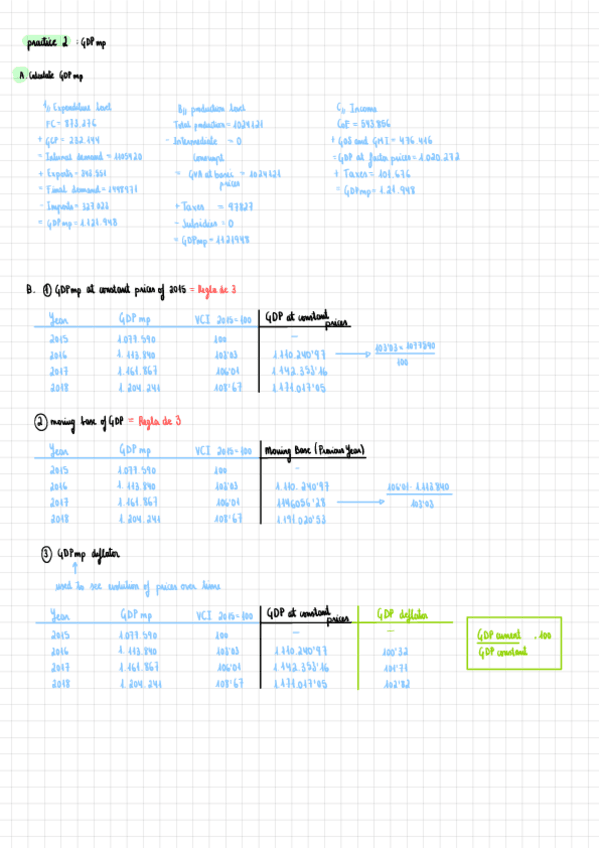 practice 2 : GDPmp
A. Calculate GDPmp
1// Expenditure level
FC = 873.276
+ GCF = 232.144
= Internal demand = 1105420
+ Exports = 343.551
= Final demand = 1448971
- Imports = 327.023
= GDPmp = 1.121.948
B// production level
Total production = 1024121
- Intermediate = 0
Consumpt
= GVA at basic = 1024121
prices
+ Taxes = 97827
- Subsidies = 0
= GDPmp = 1121948
C// Income
CoE = 543.856
+ GOS and GMI = 476.416
= GDP at factor prices = 1.020.272
+ Taxes = 101.676
= GDPmp = 1.121.948
B. ① GDPmp at constant prices of 2015 = Regla de 3
Year GDPmp VCI 2015=100 GDP at constant prices
2015 1.077.590 100 —
2016 1.113.840 103'03 1.110.240'97 → 103'03 × 1077590
100
2017 1.161.867 106'01 1.142.353'16
2018 1.204.241 108'67 1.171.017'05
② moving base of GDP = Regla de 3
Year GDPmp VCI 2015=100 Moving Base (Previous Year)
2015 1.077.590 100 -
2016 1.113.840 103'03 1.110.240'97
2017 1.161.867 106'01 1146056'28 → 106'01 · 1.113.840
103'03
2018 1.204.241 108'67 1.191.020'53
③ GDPmp deflator
↑
used to see evolution of prices over time
Year GDPmp VCI 2015=100 GDP at constant prices GDP deflator
2015 1.077.590 100 — —
2016 1.113.840 103'03 1.110.240'97 100'32
2017 1.161.867 106'01 1.142.353'16 101'71
2018 1.204.241 108'67 1.171.017'05 102'82
GDP current · 100
GDP constant